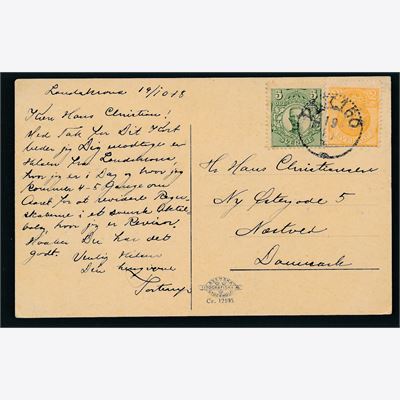 Landskrona 19/10 18
Kære Hans Christian!
Med Tak for Dit Kort
beder jeg Dig modtage en
Hilsen fra Landskrona,
hvor jeg er i Dag og hvor jeg
kommer 4-5 Gange om
Aaret for at revidere Regn-
skaberne i et svensk Aktie-
bolag, hvor jeg er Revisor.
Du har det
godt. Venlig Hilsen
Din
Hr Hans Christiansen
Ny Østergade 5
Næstved
Danmark
5
19
Co. 12195